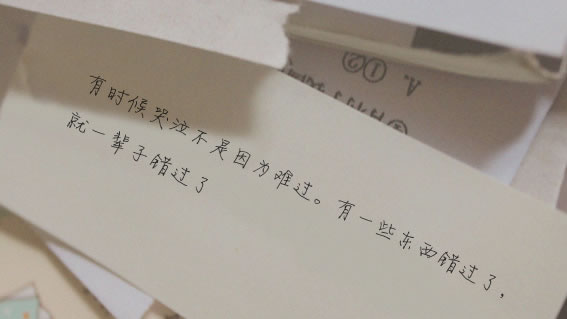 有时候哭泣不是因为难过。有一些东西错过了,
就一辈子错过了
A. ①②